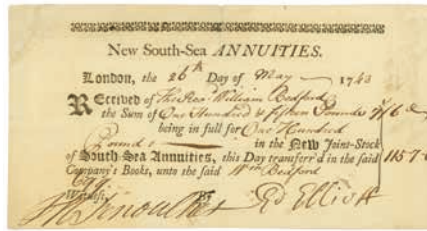 New South-Sea ANNUITIES.
London, the 26th Day of May 1743
Received of The Revd William Bedford
the Sum of One Hundred & fifteen Pounds 7/6
being in full for One Hundred
Pounds in the New Joint-Stock
of South Sea Annuities, this Day transferr'd in the said 115-7-
Company's Books, unto the said Wm Bedford
Witness By Ed Elliott